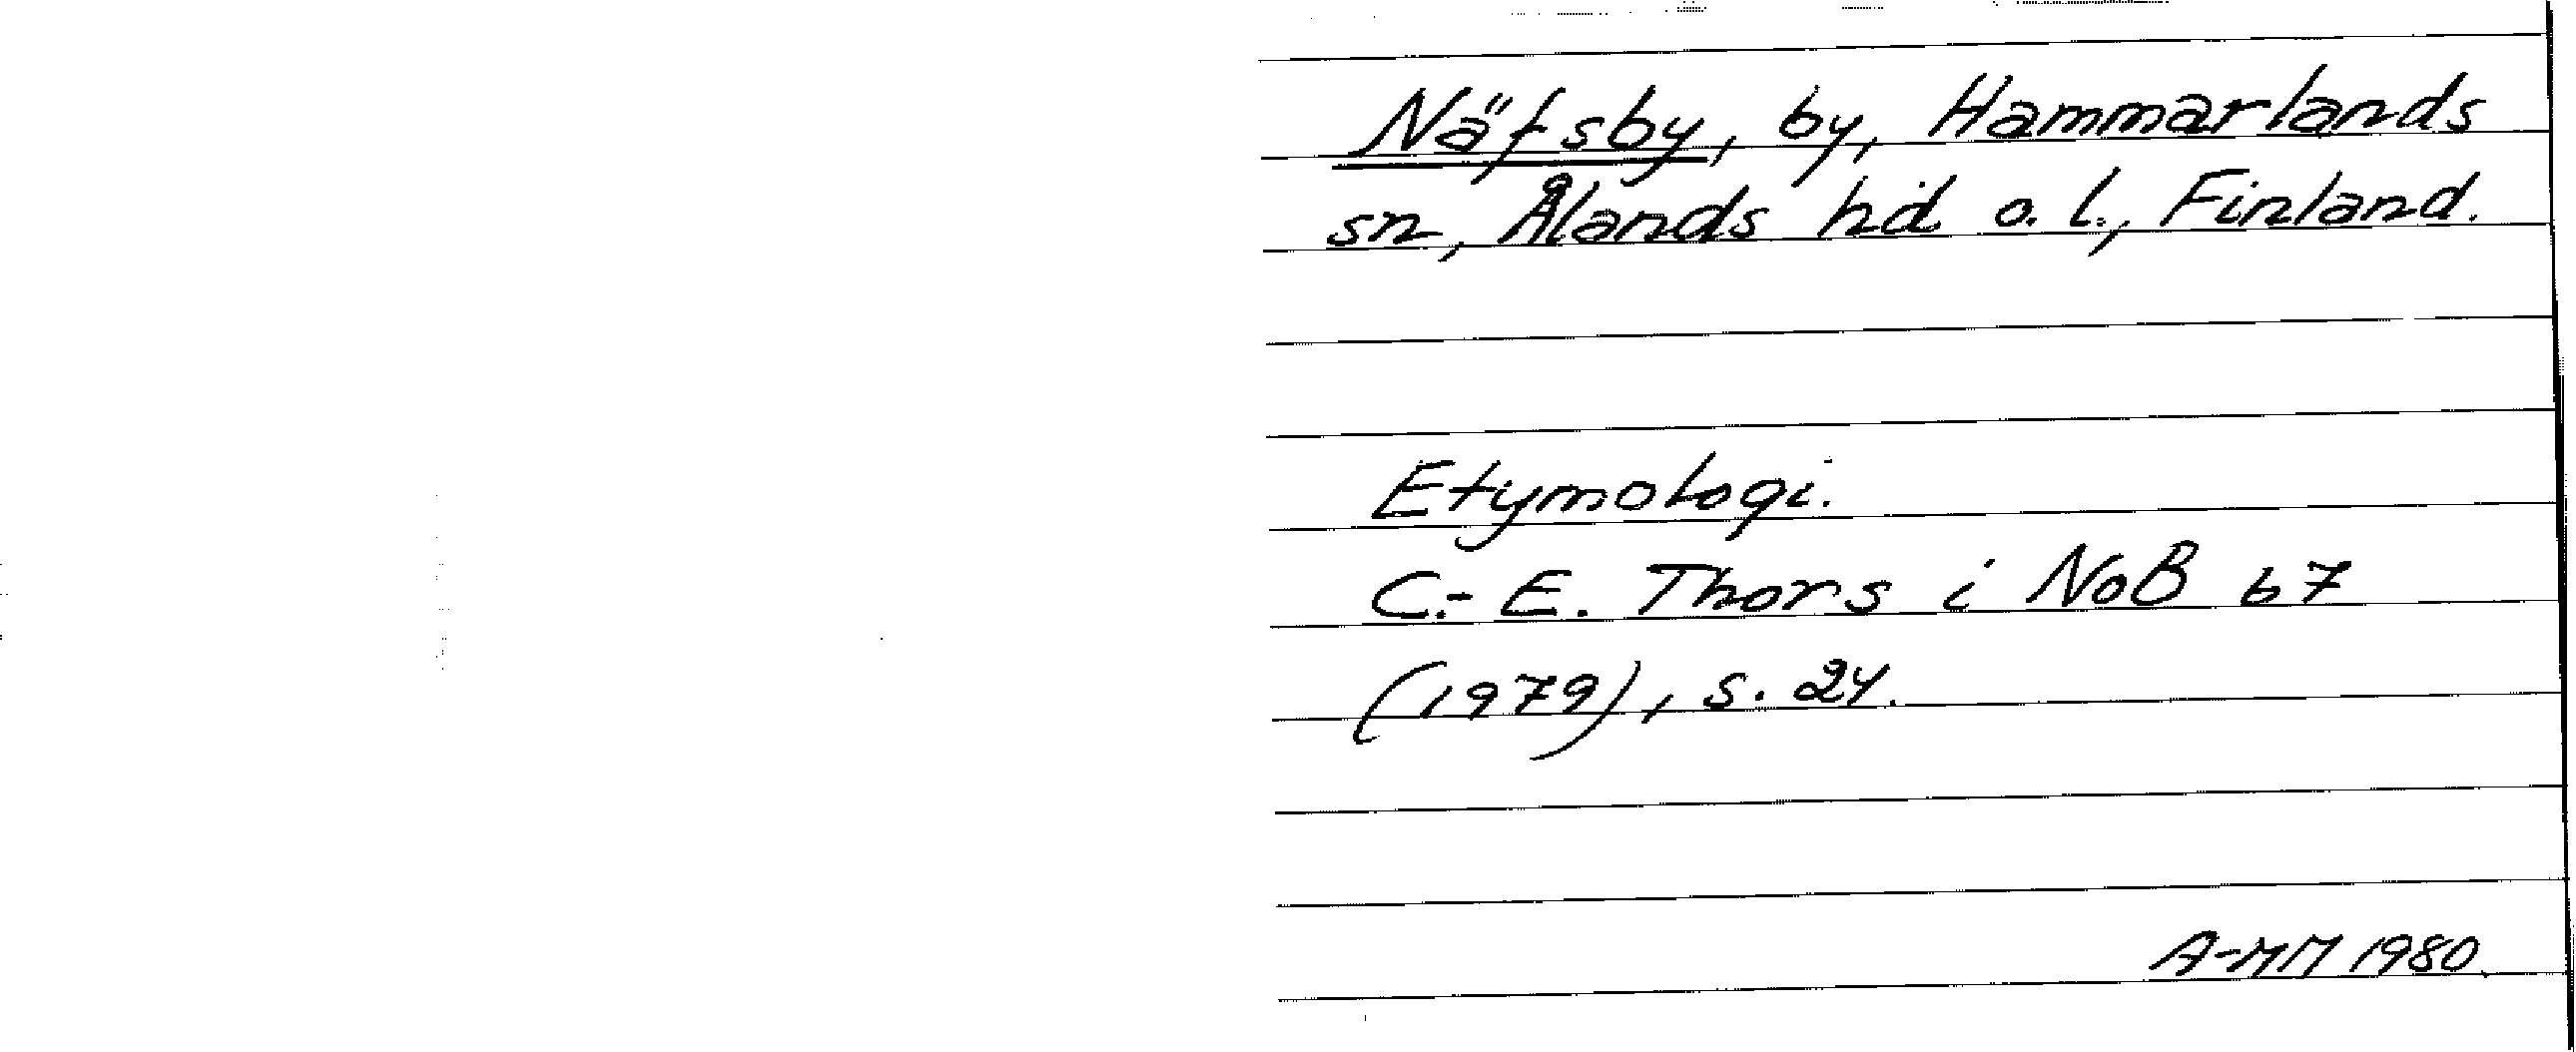 Näfsby, by, Hammarlands
sn, Ålands hd o. l., Finland.
Etymologi.
C.-E. Thors i NoB 67
(1979), s. 24.
A-MM 1980.